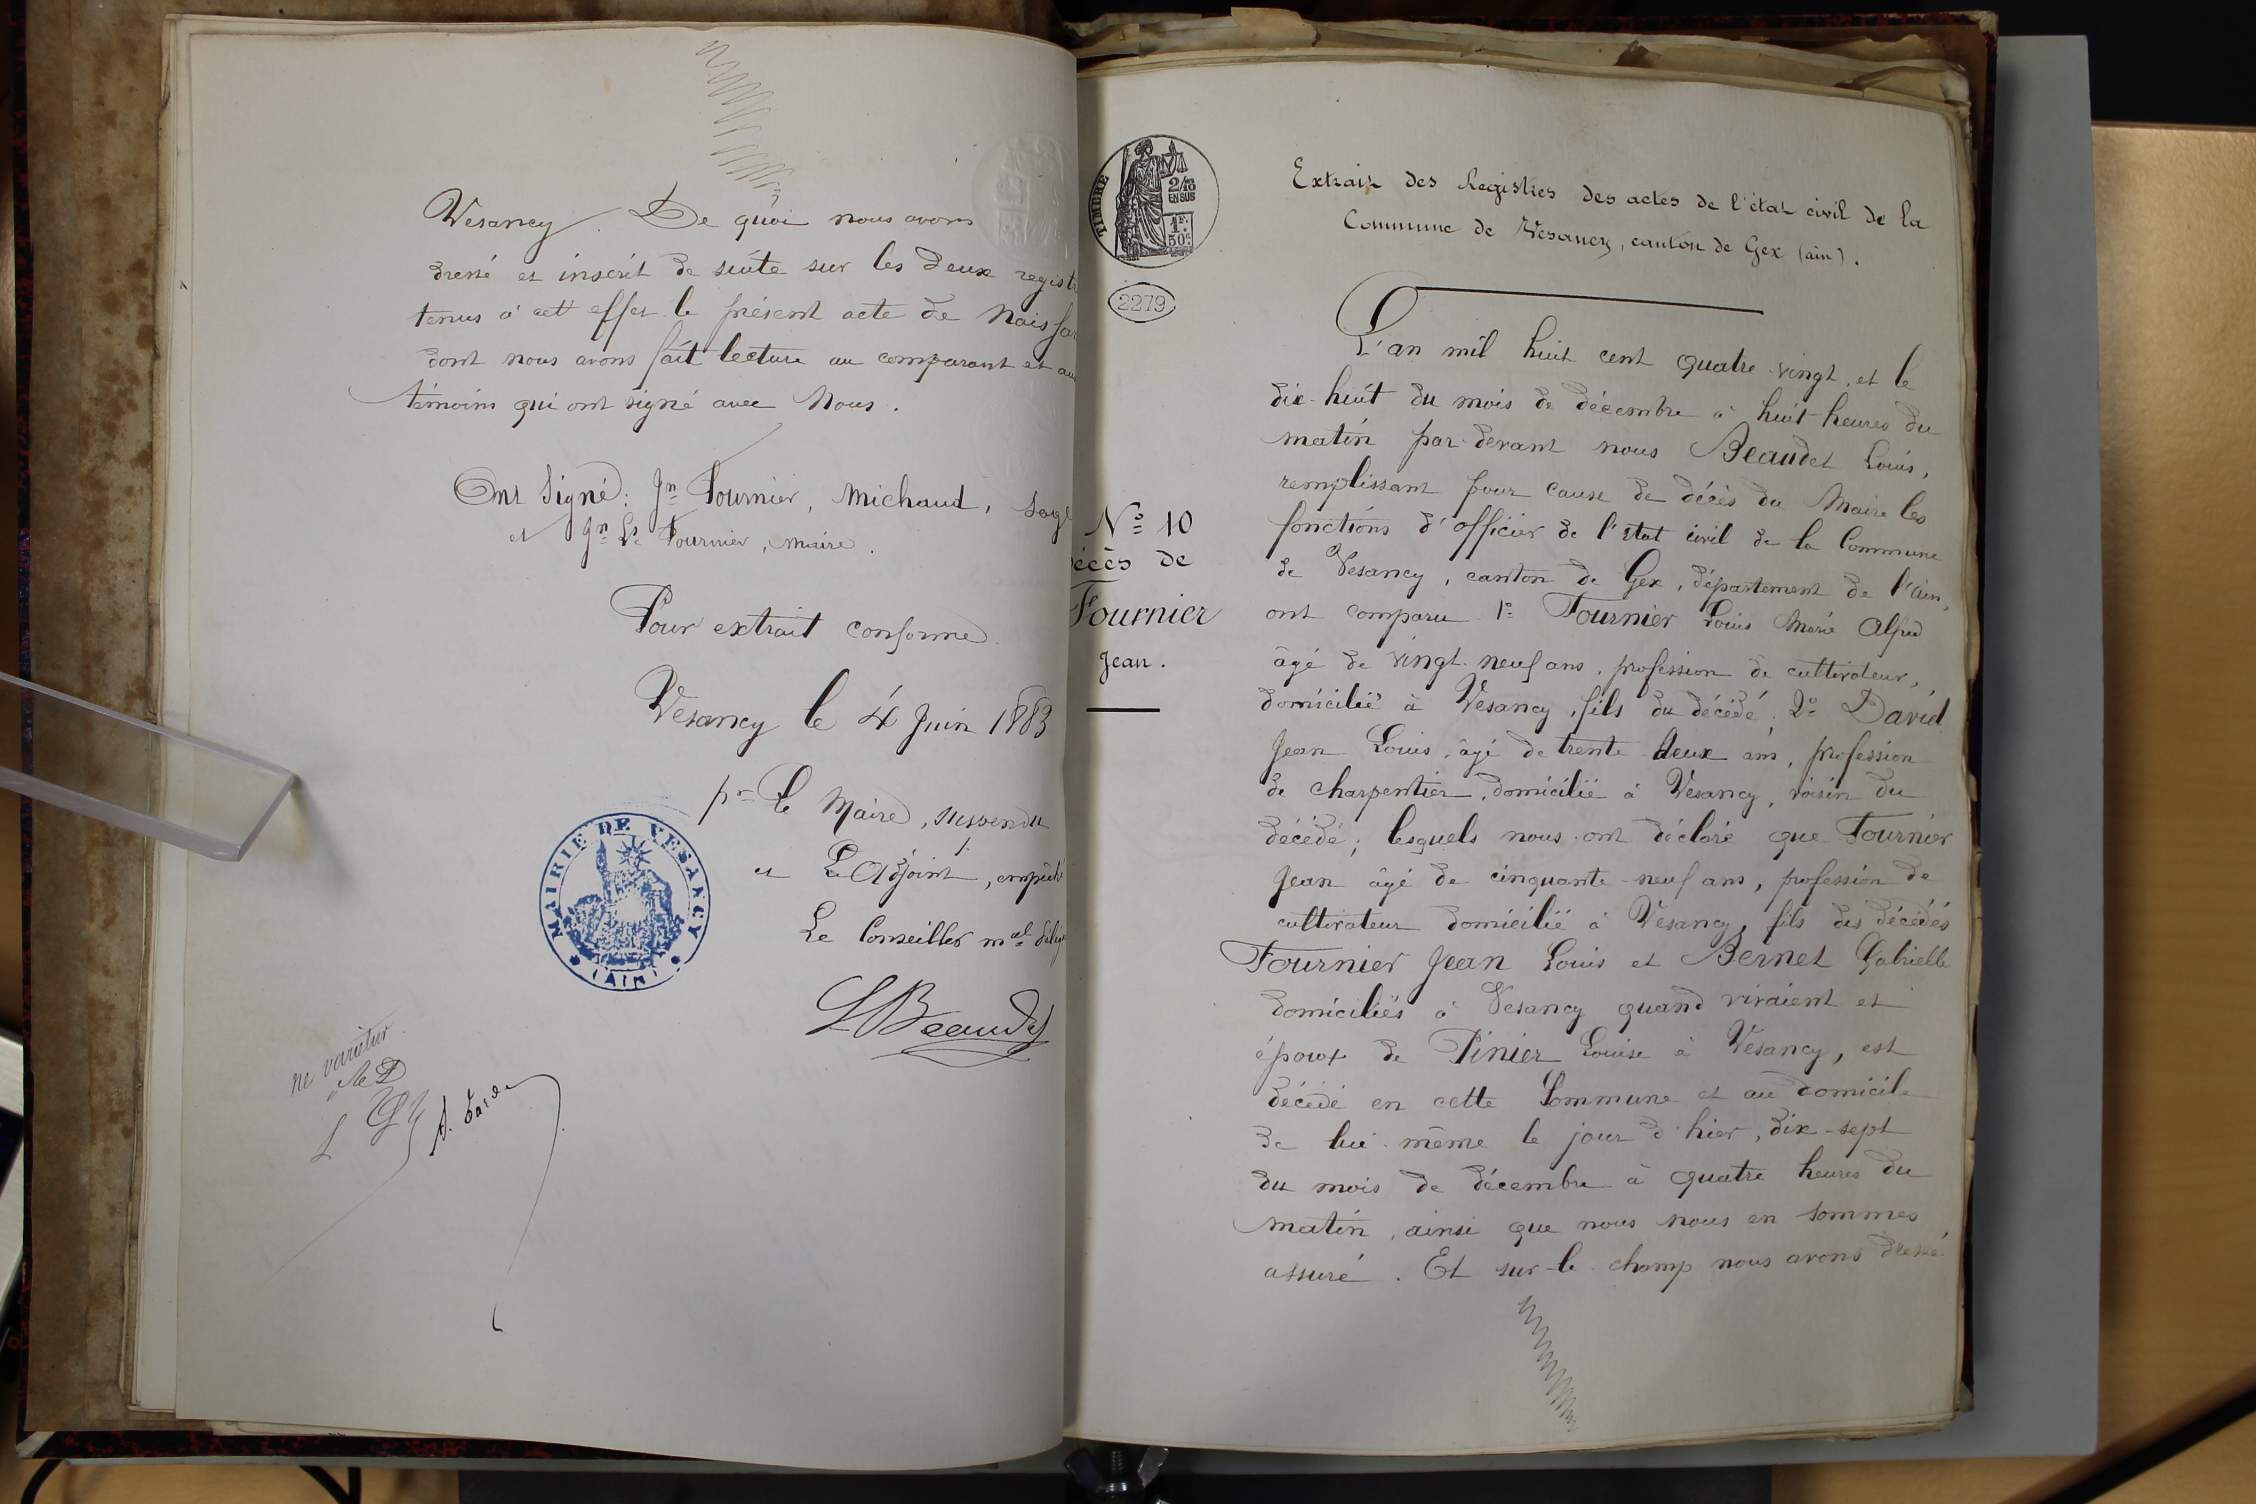 Vesancy. De quoi nous avons
dressé et inscrit de suite sur les deux regist
tenus à cett effet le présent acte de Naissan
dont nous avons fait lecture au comparant et au
témoins qui ont signé avec Nous.
Ont Signé: Jn Fournier, Michaud,
et Jn Ls Fournier, maire.
Pour extrait conforme
Vesancy le 4 Juin 1883
pr Le Maire, suspendu
et L'Adjoint, empêché
Le Conseiller mal délég
LBeaudet
MAIRIE DE VESANCY
(AIN)
ne varietur
TIMBRE
2/10
EN SUS
1F.
50c
2279
Nº 10
écès de
Fournier
Jean.
Extrait des Registres des actes de l'état civil de la
Commune de Vesancy, canton de Gex (ain).
L'an mil huit cent quatre-vingt, et le
dix-huit du mois de décembre à huit heures du
matin par-devant nous Beaudet Louis,
remplissant pour cause de décès du Maire les
fonctions d'officier de l'Etat civil de la Commune
de Vesancy, canton de Gex, département de l'ain,
ont comparu 1º Fournier Louis Marie Alfred
âgé de vingt-neuf ans, profession de cultivateur,
domicilié à Vesancy, fils du décédé. 2º David
Jean Louis, âgé de trente-deux ans, profession
de charpentier, domicilié à Vesancy, voisin du
décédé; lesquels nous ont déclaré que Fournier
Jean âgé de cinquante-neuf ans, profession de
cultivateur domicilié à Vesancy, fils des décédés
Fournier Jean Louis et Bernet Gabrielle
domiciliés à Vesancy quand vivaient et
époux de Pinier Louise à Vesancy, est
décédé en cette Commune et au domicile
de lui-même le jour d'hier, dix-sept
du mois de décembre à quatre heures du
matin, ainsi que nous nous en sommes
assuré. Et sur-le-champ nous avons dressé